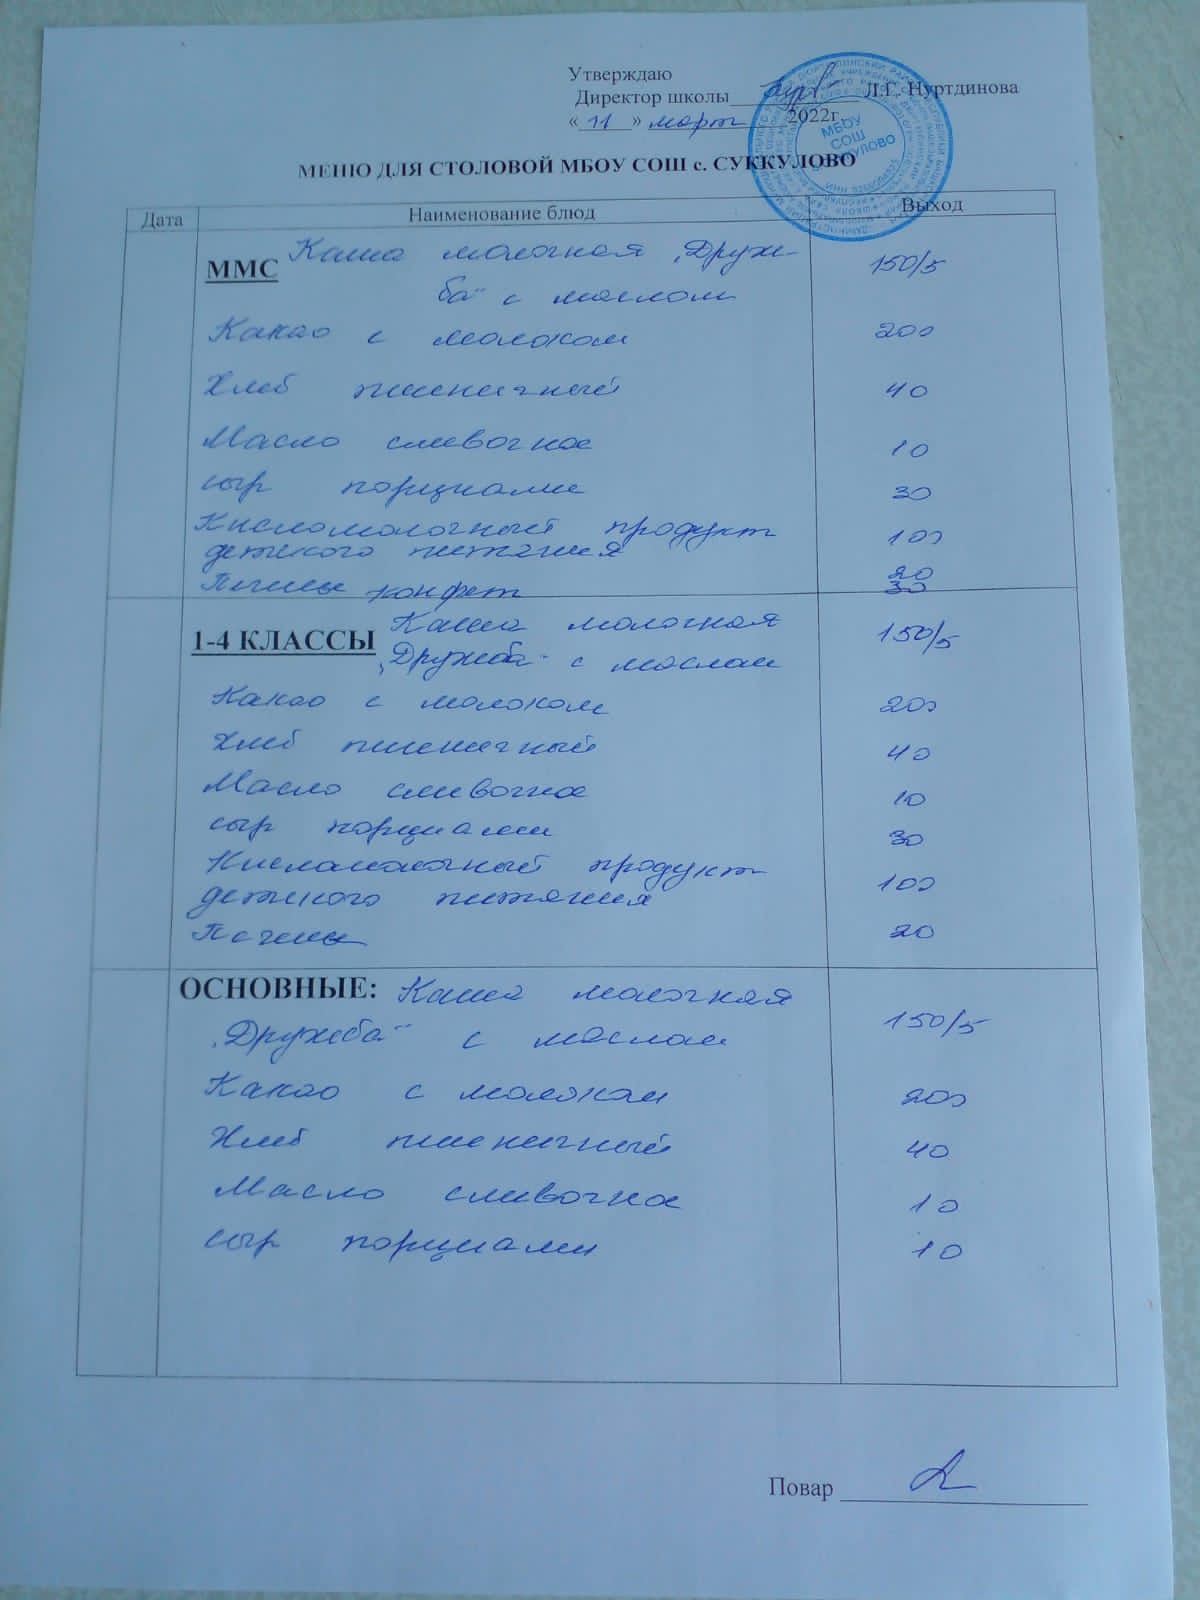 Утверждаю
Директор школы Л.Г. Нуртдинова
« 11 » март 2022г.
МБОУ
СОШ
МЕНЮ ДЛЯ СТОЛОВОЙ МБОУ СОШ с. СУККУЛОВО
Дата Наименование блюд Выход
ММС Каша молочная „Друж- 150/5
ба" с маслом
Какао с молоком 200
Хлеб пшеничный 40
Масло сливочное 10
сыр порциями 30
Кисломолочный продукт 100
детского питания
Печенье конфет 20
30
1-4 КЛАССЫ Каша молочная 150/5
„Дружба" с маслом
Какао с молоком 200
Хлеб пшеничный 40
Масло сливочное 10
сыр порциями 30
Кисломолочный продукт 100
детского питания
Печенье 20
ОСНОВНЫЕ: Каша молочная 150/5
„Дружба" с маслом
Какао с молоком 200
Хлеб пшеничный 40
Масло сливочное 10
сыр порциями 10
Повар